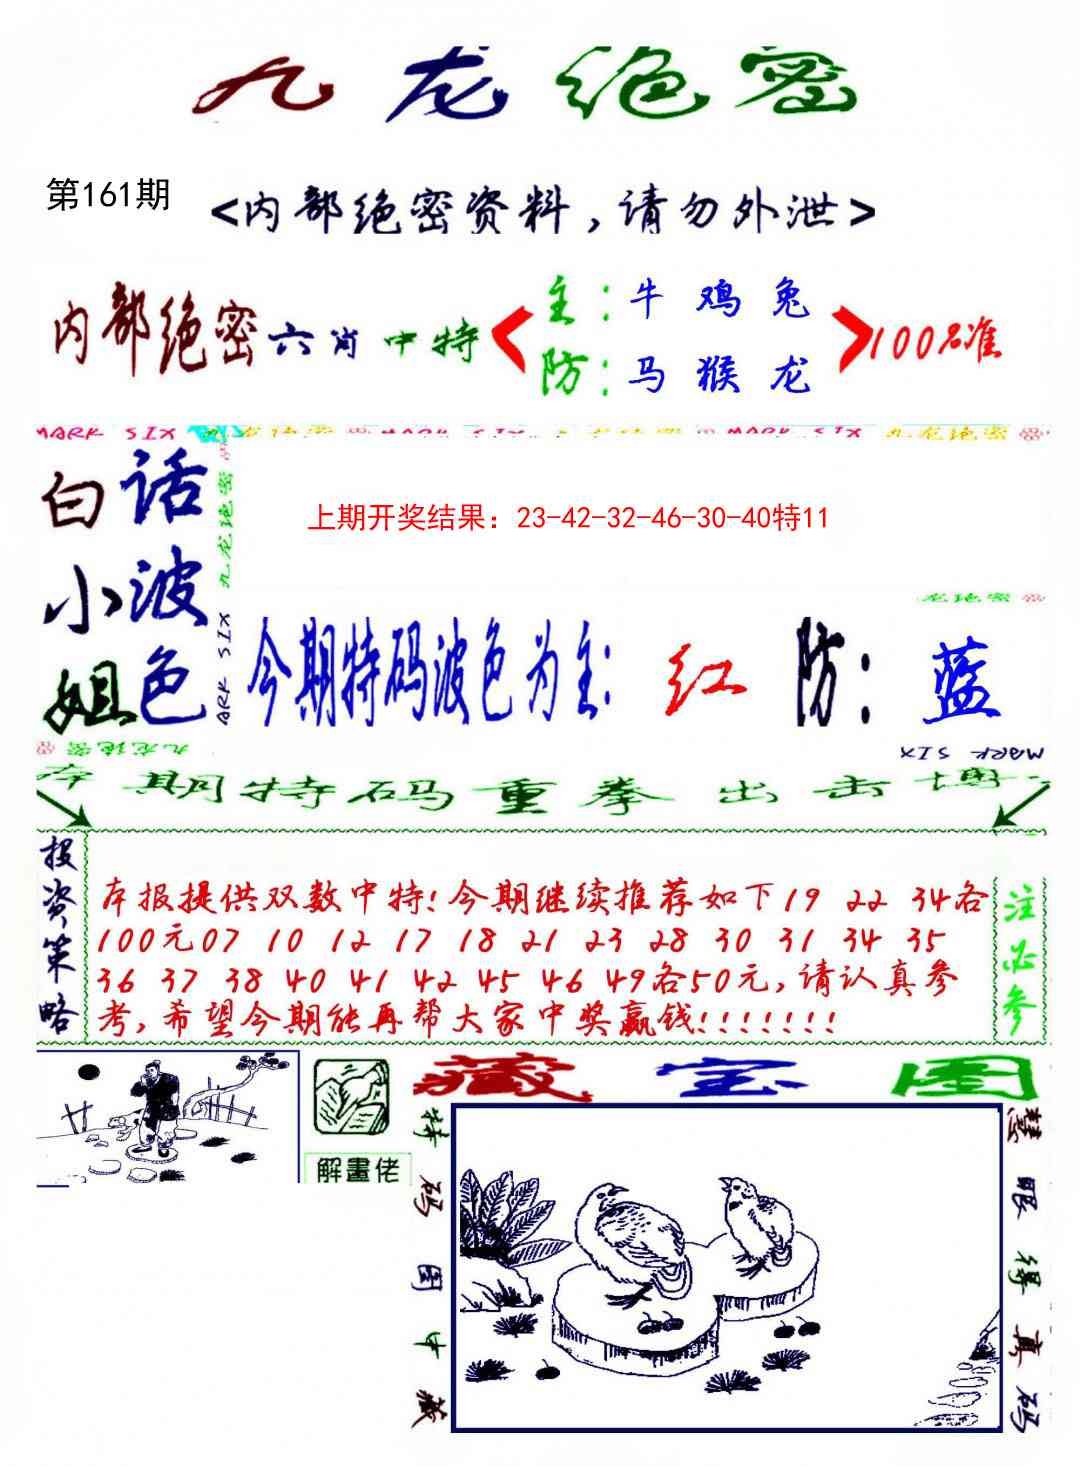 九龙绝密
第161期
<内部绝密资料,请勿外泄>
内部绝密六肖中特
主:牛 鸡 兔
防:马 猴 龙
100%准
MARK SIX 九龙绝密 MARK SIX 九龙绝密 MARK SIX 九龙绝密
白话
小波
姐色
九龙绝密
MARK SIX
上期开奖结果：23-42-32-46-30-40特11
九龙绝密
今期特码波色为主: 红 防: 蓝
九龙绝密
MARK SIX
本期特码重拳出击博
投资策略
本报提供双数中特!今期继续推荐如下19 22 34各
100元07 10 12 17 18 21 23 28 30 31 34 35
36 37 38 40 41 42 45 46 49各50元,请认真参
考,希望今期能再帮大家中奖赢钱!!!!!!!
注必参
解畫佬
藏宝图
特码图中藏
慧眼得真码